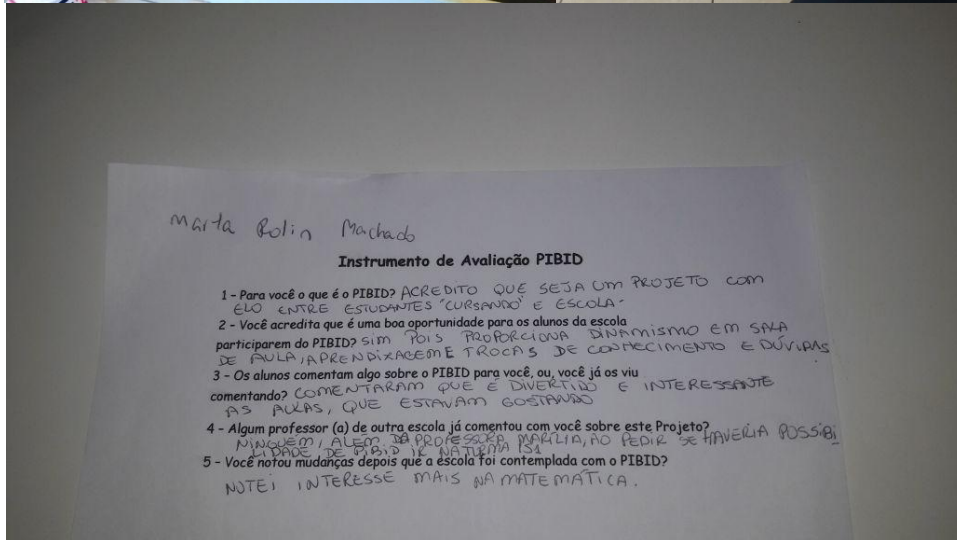 Marta Rolin Machado
Instrumento de Avaliação PIBID
1 - Para você o que é o PIBID? ACREDITO QUE SEJA UM PROJETO COM
ELO ENTRE ESTUDANTES "CURSANDO" E ESCOLA.
2 - Você acredita que é uma boa oportunidade para os alunos da escola
participarem do PIBID? SIM POIS PROPORCIONA DINAMISMO EM SALA
DE AULA, APRENDIXAGEM E TROCAS DE CONHECIMENTO E DÚVIDAS
3 - Os alunos comentam algo sobre o PIBID para você, ou, você já os viu
comentando? COMENTARAM QUE É DIVERTIDO E INTERESSANTE
AS AULAS, QUE ESTAVAM GOSTANDO
4 - Algum professor (a) de outra escola já comentou com você sobre este Projeto?
NINGUÉM, ALÉM DA PROFESSORA MARÍLIA, AO PEDIR SE HAVERIA POSSIBI
LIDADE DE PIBID IR NA TURMA 151
5 - Você notou mudanças depois que a escola foi contemplada com o PIBID?
NOTEI INTERESSE MAIS NA MATEMÁTICA.